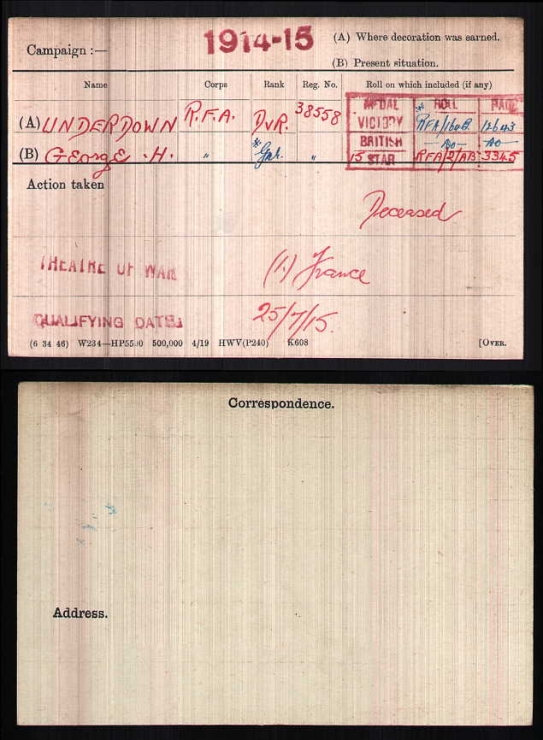 Campaign :— 1914-15 (A) Where decoration was earned.
(B) Present situation.
Name Corps Rank Reg. No. Roll on which included (if any)
MEDAL ROLL PAGE
(A) UNDERDOWN R.F.A. DvR. 38558 VICTORY RFA/160B 12643
(B) George .H. " * Gnr. " BRITISH -do- -do-
15 STAR RFA/2/AB 3345
Action taken
Deceased
THEATRE OF WAR (1) France
QUALIFYING DATE 25/7/15.
(6 34 46) W234—HP5590 500,000 4/19 HWV(P240) K608 [OVER.
Correspondence.
Address.